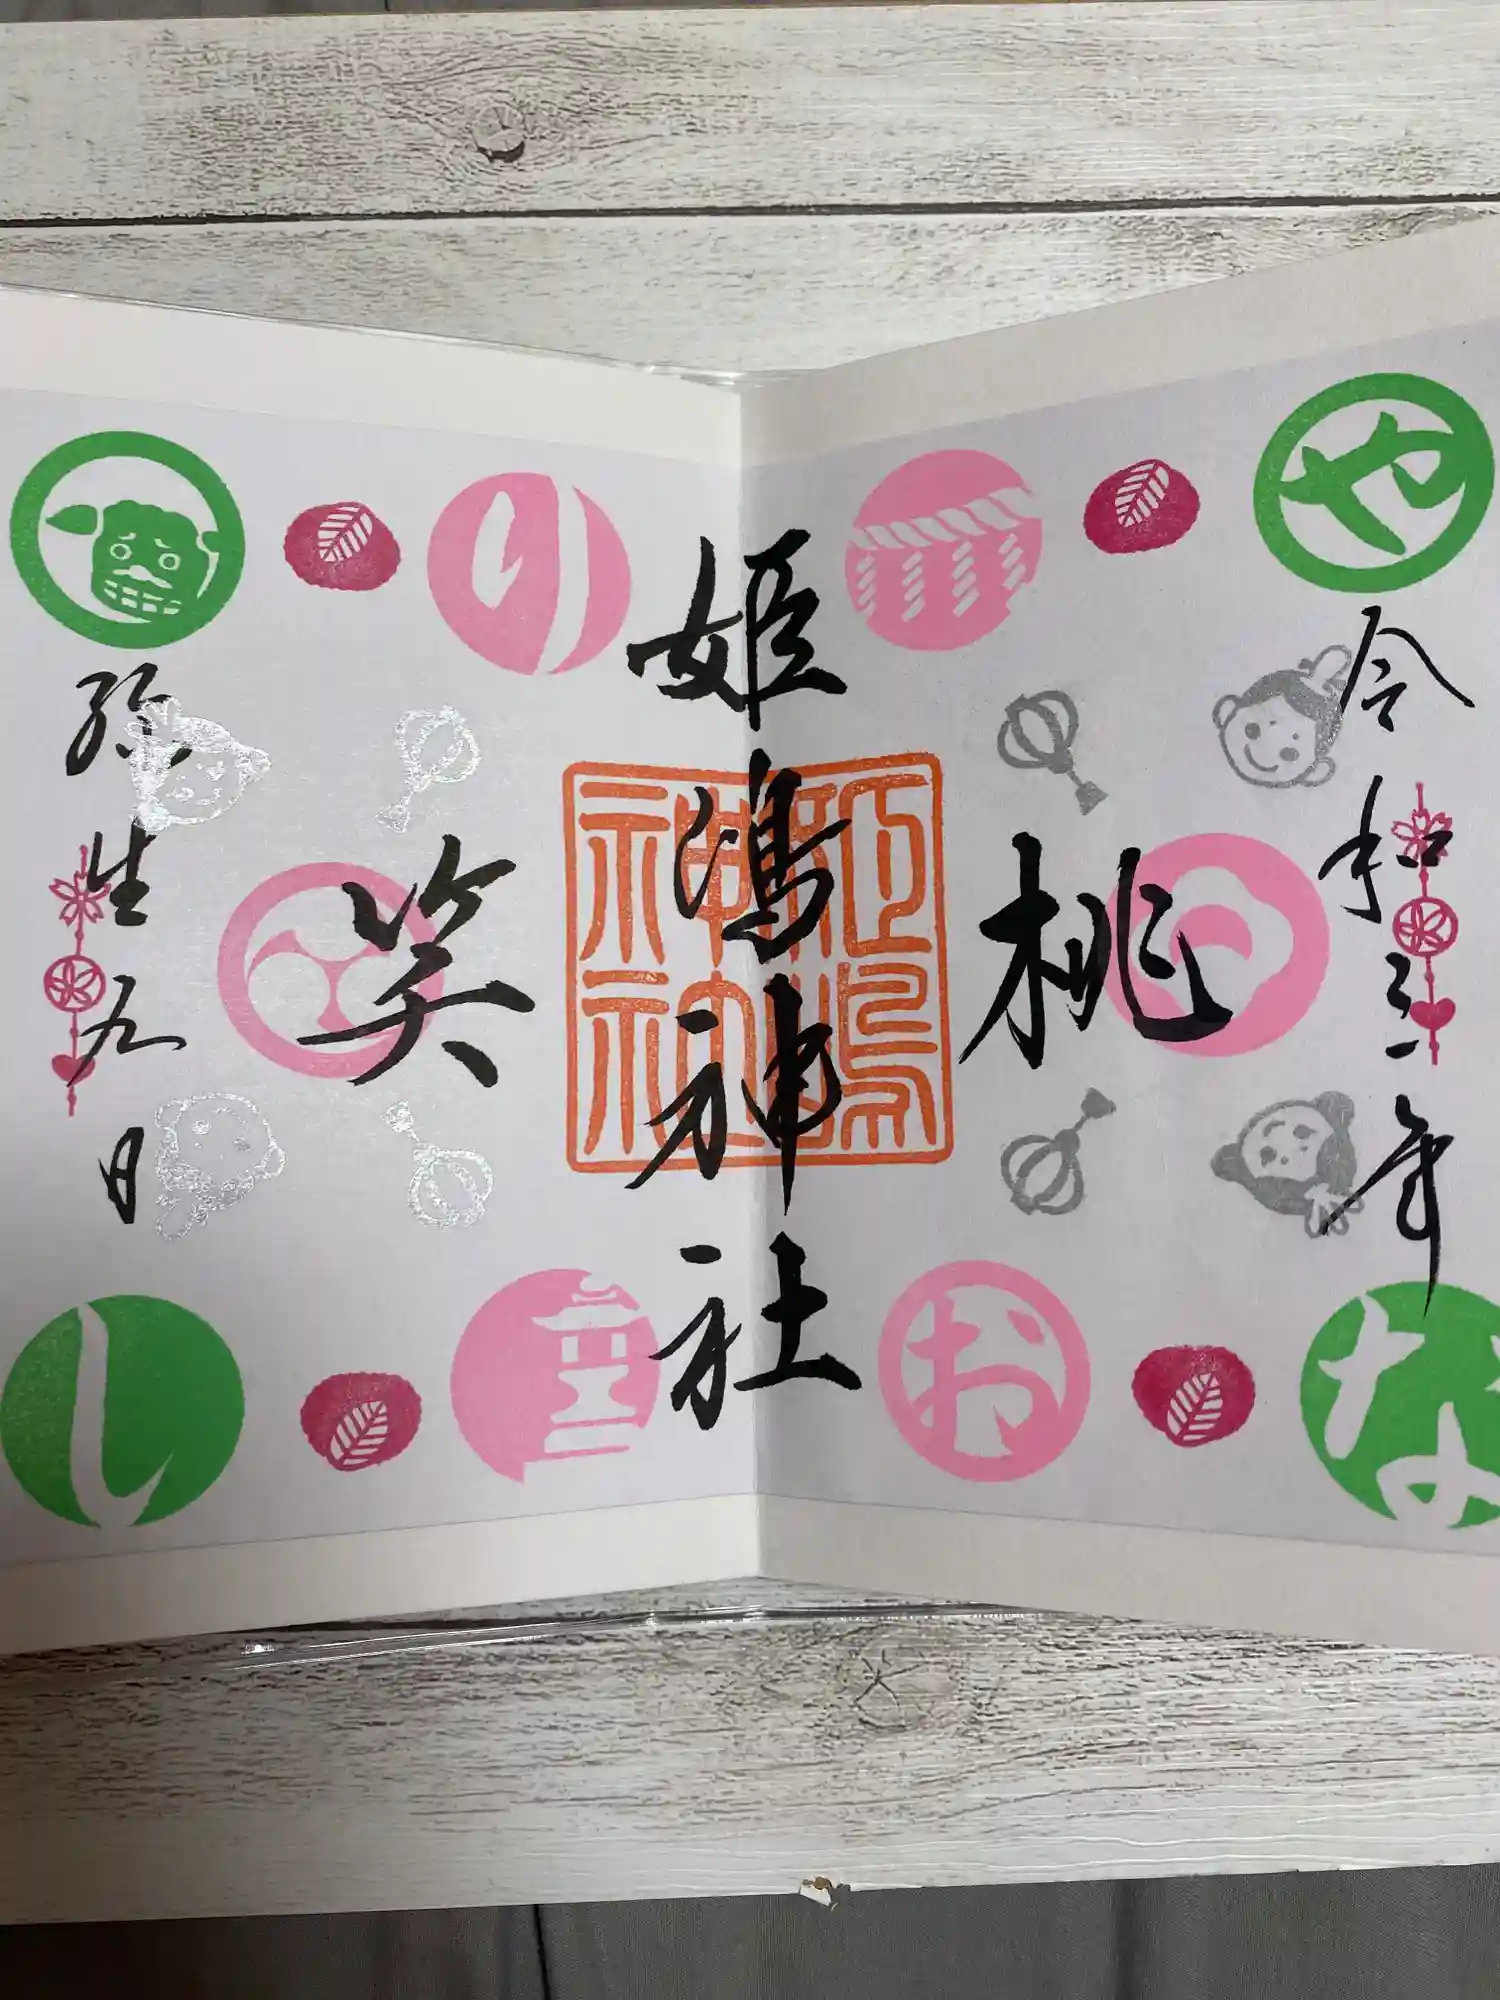 や
令和三年
な
桃
お
姫嶋神社
姫嶋
神社
の
笑
弥生九日
し